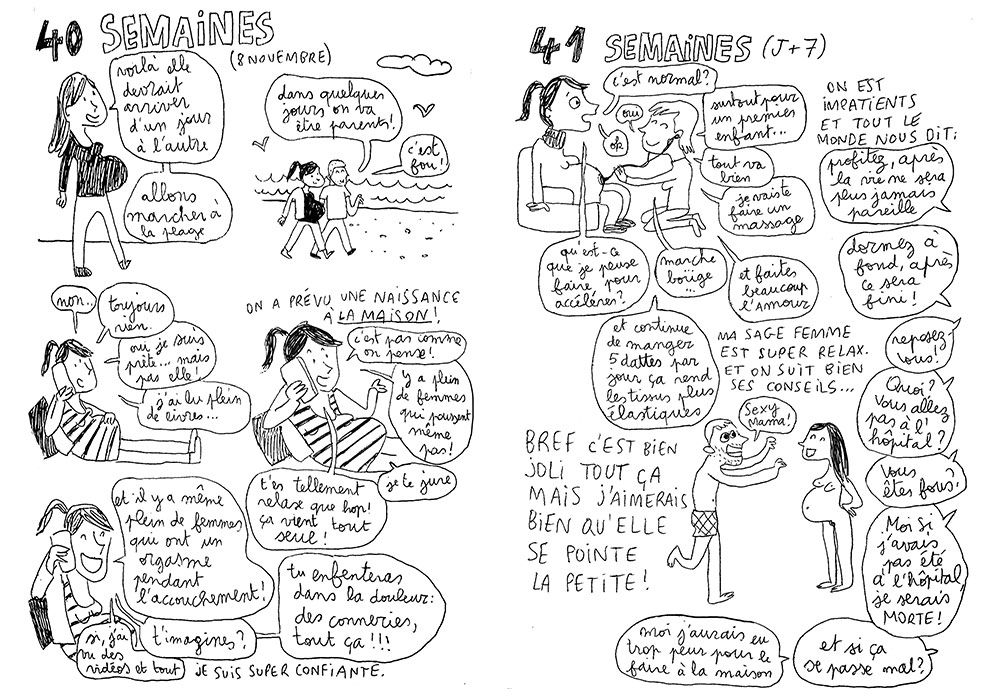 40 SEMAiNES
(8 NOVEMBRE)
voilà elle
devrait
arriver
d'un jour
à l'autre
allons
marcher à
la plage
dans quelques
jours on va
être parents!
c'est
fou!
non..
toujours
rien.
oui je suis
prête... mais
pas elle!
j'ai lu plein
de livres...
ON A PRÉVU UNE NAISSANCE
À LA MAISON!
c'est pas comme
on pense!
y a plein
de femmes
qui poussent
même
pas!
je te jure
t'es tellement
relaxe que hop!
ça vient tout
seul!
et il y a même
plein de femmes
qui ont un
orgasme
pendant
l'accouchement!
si, j'ai
vu des
vidéos et tout
t'imagines?
tu enfenteras
dans la douleur:
des conneries,
tout ça!!!
JE SUIS SUPER CONFIANTE.
41 SEMAiNES (J+7)
c'est normal?
oui
ok
surtout pour
un premier
enfant...
tout va
bien
je vais te
faire un
massage
qu'est-ce
que je peux
faire pour
accélérer?
marche
bouge
...
et faites
beaucoup
l'amour
et continue
de manger
5 dattes par
jour ça rend
les tissus plus
élastiques
MA SAGE FEMME
EST SUPER RELAX.
ET ON SUIT BIEN
SES CONSEILS...
ON EST
IMPATIENTS
ET TOUT LE
MONDE NOUS DIT:
profitez, après
la vie ne sera
plus jamais
pareille
dormez à
fond, après
ce sera
fini!
reposez-
vous!
Quoi?
Vous allez
pas à l'
hôpital?
Vous
êtes fous!
Moi si
j'avais
pas été
à l'hôpital
je serais
MORTE!
et si ça
se passe mal?
moi j'aurais eu
trop peur pour le
faire à la maison
Sexy
Mama!
BREF C'EST BIEN
JOLI TOUT ÇA
MAIS J'AIMERAIS
BIEN QU'ELLE
SE POINTE
LA PETITE!